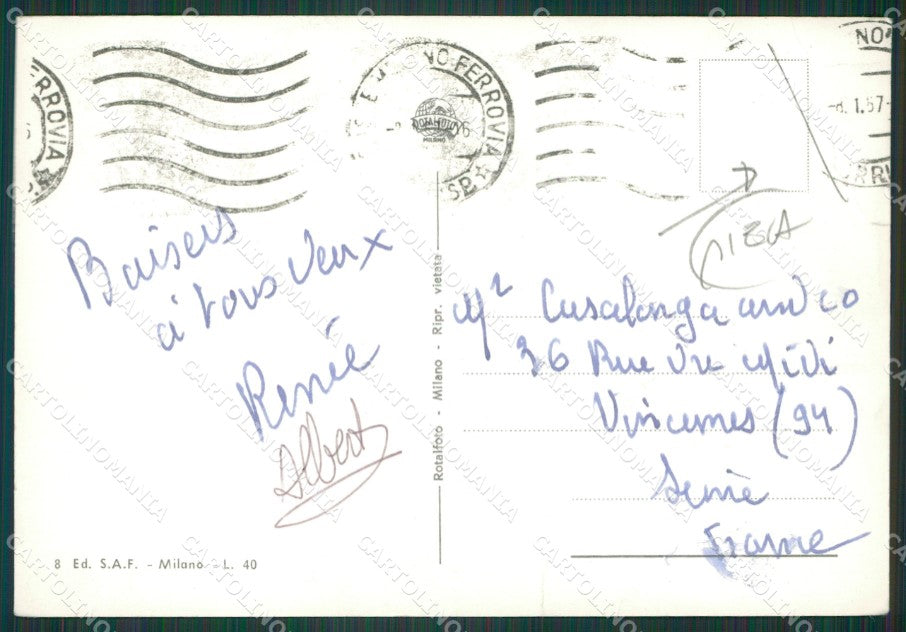 MILANO FERROVIA
NO
8.1.67
FERROVIA
ROTALFOTO
MILANO
Baisers
à tous deux
Renée
Albert
Mr Casalonga
36 Rue du Midi
Vincennes (94)
Seine
France
Rotalfoto - Milano - Ripr. vietata
8 Ed. S.A.F. - Milano - L. 40
CARTOLINOMANIA